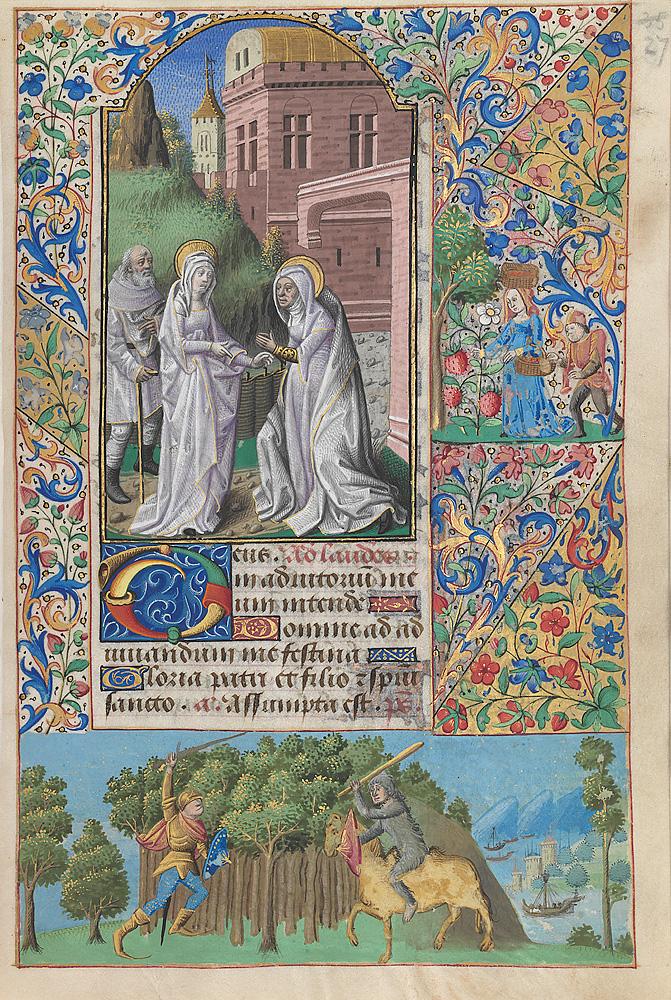 Deus. Ad laudes
in adiutoriū me
um intende
Domine ad ad
iuuandum me festina
Gloria patri et filio ⁊ spūi
sancto. a. Assumpta est. ps.